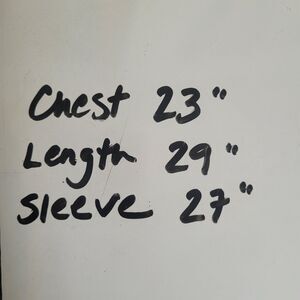 Chest 23"
Length 29"
Sleeve 27"